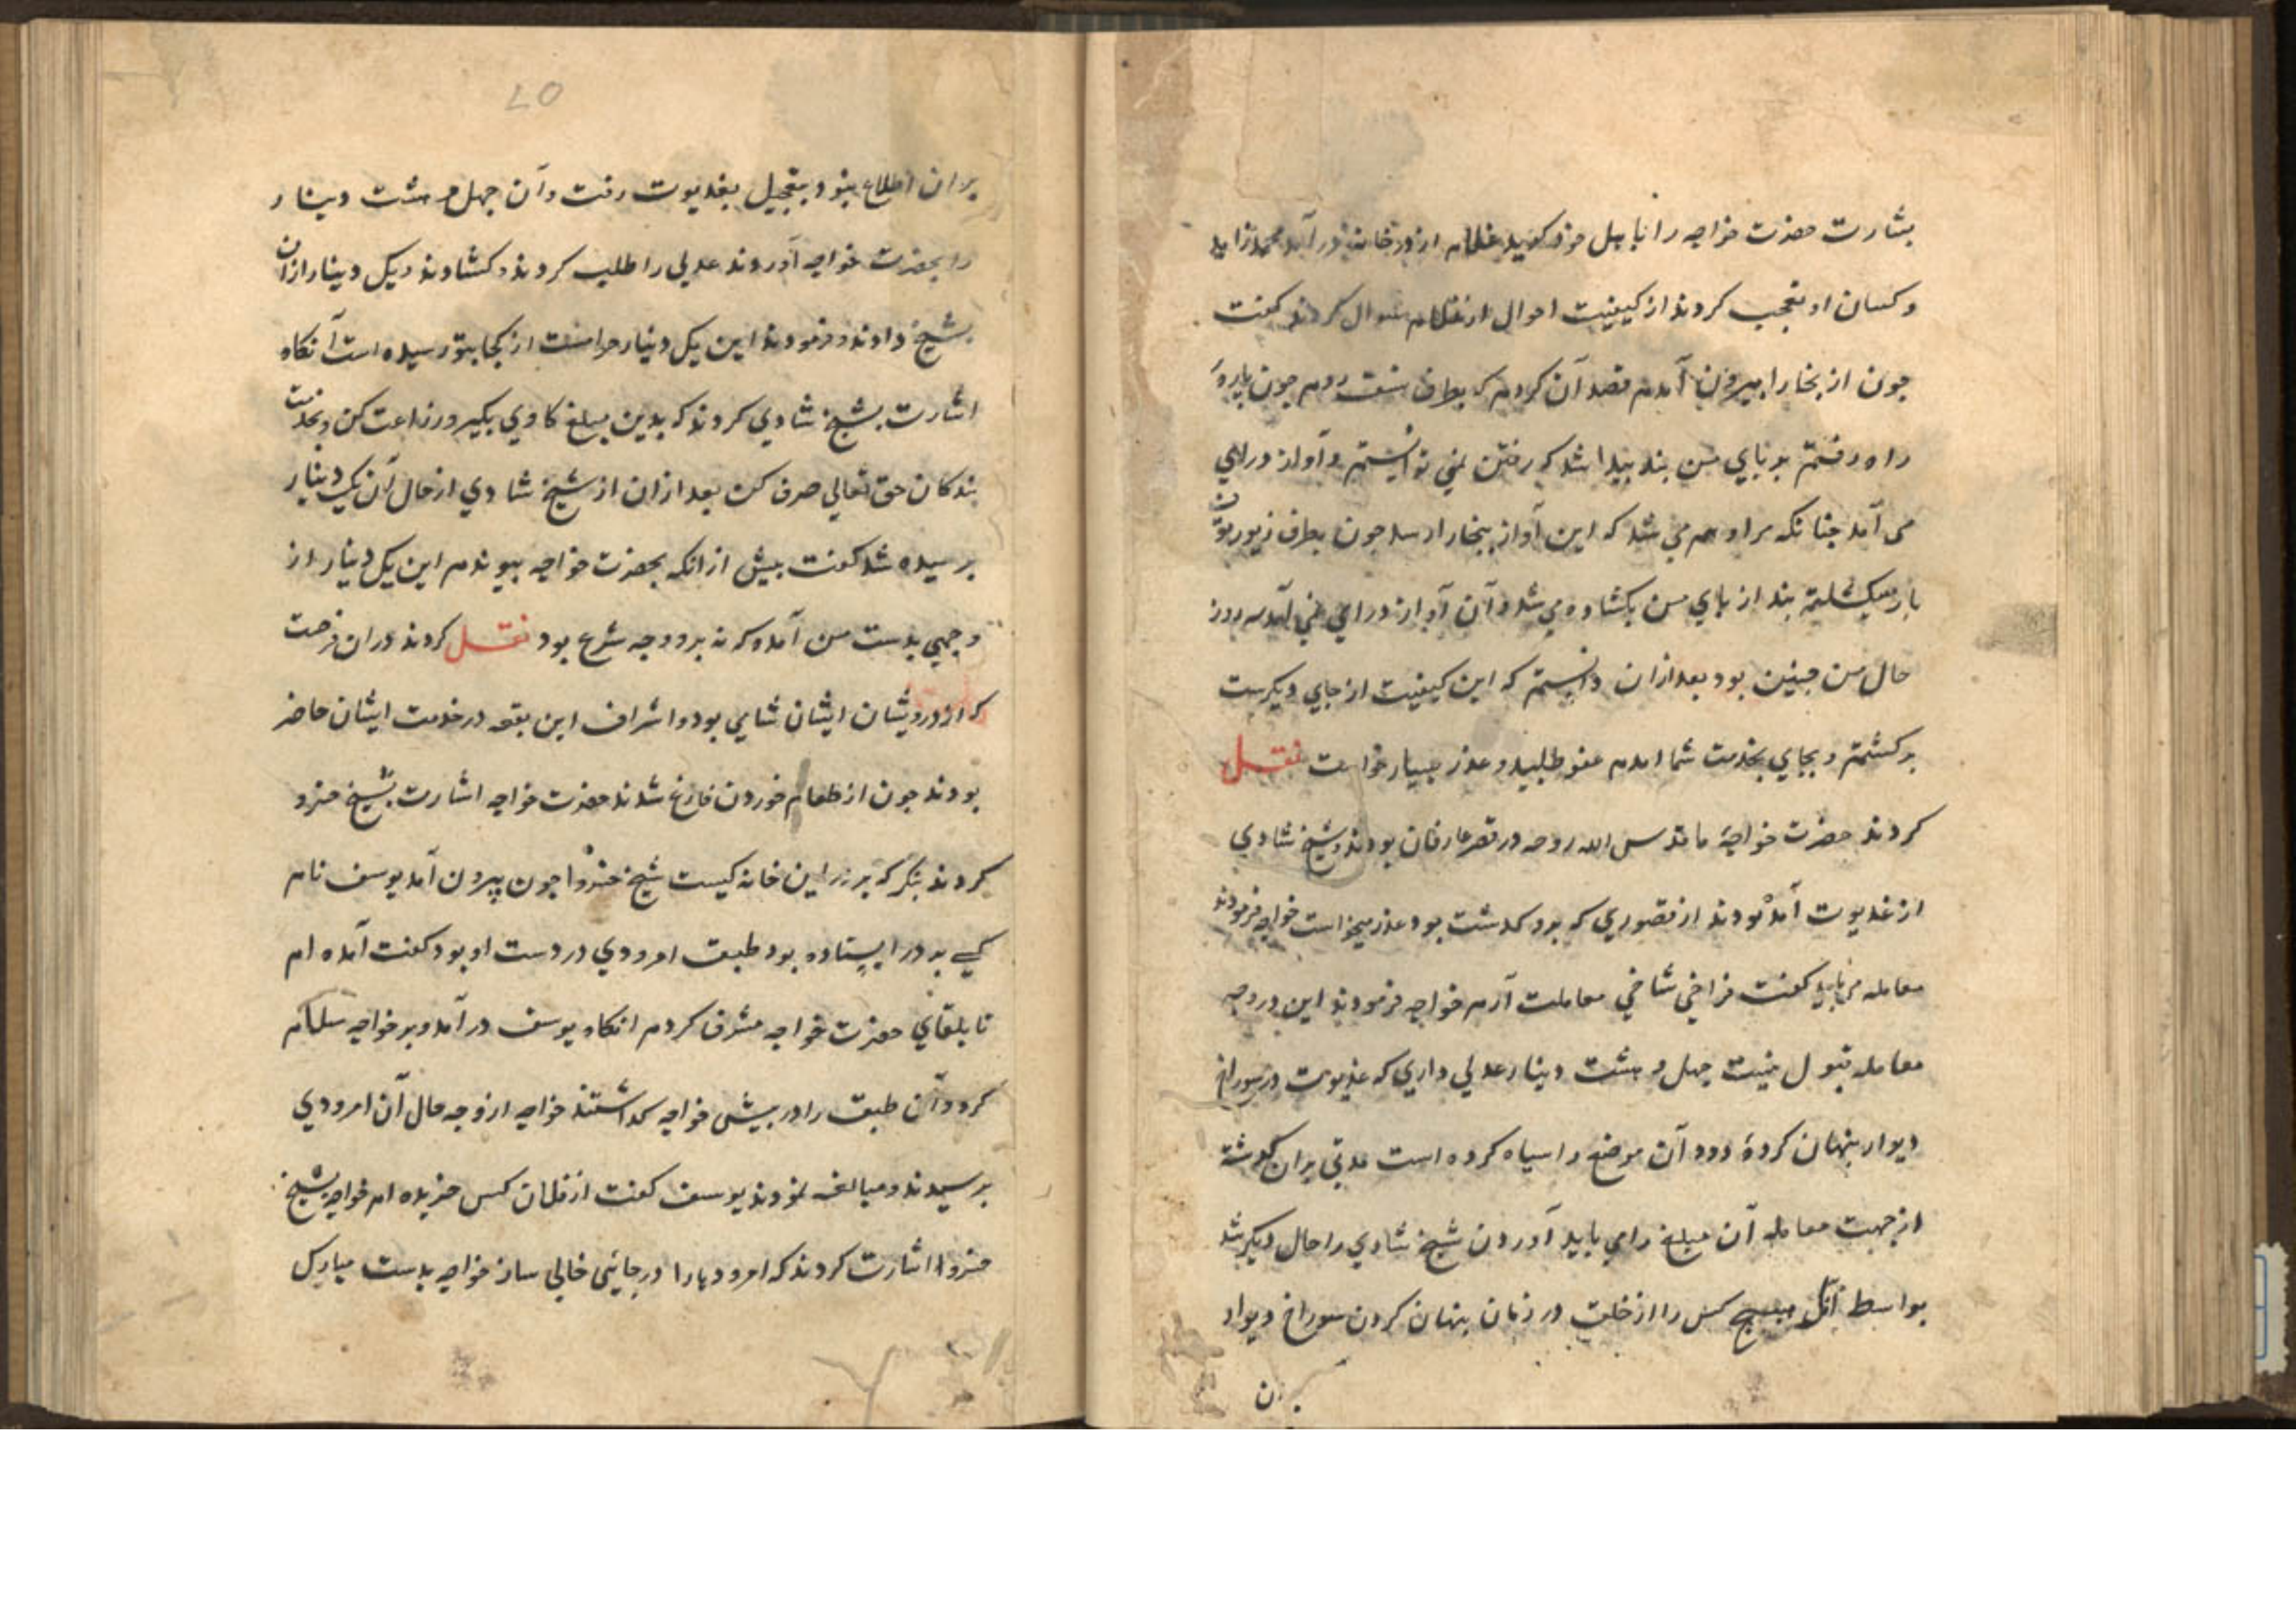 بشارت حضرت خواجه را باهل خود کوید غلام از در خانه درآمد محمد زاهد
و کسان او تعجب کردند از کیفیت احوال از غلام سوال کردند کفت
جون از بخارا بیرون آمدم قصد آن کردم که بطرف نسف روم جون باره
راه رفتم بر بای من بند بیدا شد که رفتن نمی توانستم و آواز درایی
می آمد جنانکه مرا وهم می شد که این آواز ببخارا رسد جون بطرف زیورتون
باز میکشتم بند از بای من بکشاده می شد و آن آواز درایی نمی آمد سه روز
حال من جنین بود بعد ازان دانستم که این کیفیت از جای دیکرست
برکشتم و بجای بخدمت شما امدم عفو طلبید و عذر بسیار خواست نقل
کردند حضرت خواجۀ ما قدس الله روحه در قصر عارفان بودند و شیخ شادی
از غدیوت آمده بودند از قصوری که بود کدشت بود عذر میخواست خواجه فرمودند
معامله می باید کفت فراخی شاخی معاملت آرم خواجه فرمودند این در وجه
معامله قبول نیست جهل و هشت دینار عدلی داری که غدیوت در سوراخ
دیوار بنهان کردۀ دود آن موضع را سیاه کرده است مدتی بران کدشته
از جهت معامله آن مبلغ را می باید آوردن شیخ شادی را حال دیکر شد
بواسطۀ آنک هیج کس را از خلق در زمان بنهان کردن سوراخ دیوار
بران
بران اطلاع نبود بتعجیل بغدیوت رفت و آن جهل و هشت دینار
را بحضرت خواجه آوردند عدلی را طلب کردند و کشادند و یک دینار ازان
بشیخ دادند و فرمودند این یک دینار حرامست از کجا بتو رسیده است آنکاه
اشارت بشیخ شادی کردند که بدین مبلغ کاوی بکیر و زراعت کن و بخدمت
بندکان حق تعالی صرف کن بعد ازان از شیخ شادی از حال آن یک دینار
برسیده شد کفت بیش ازانکه بحضرت خواجه بیوندم این یک دینار از
وجهی بدست من آمده که نه بر وجه شرع بود نقل کردند دران فرصت
که از درویشان ایشان شامی بود و اشراف این بقعه در خدمت ایشان حاضر
بودند جون از طعام خوردن فارغ شدند حضرت خواجه اشارت بشیخ خسرو
کردند بنکر که بر در این خانه کیست شیخ خسرو جون بیرون آمد یوسف نام
کسی بر در ایستاده بود طبق امرودی در دست او بود کفت آمده ام
تا بلقای حضرت خواجه مشرف کردم انکاه یوسف درآمد و بر خواجه سلام
کرد و آن طبق را در بیش خواجه کداشتند خواجه از وجه حال آن امرودی
برسیدند و مبالغه نمودند یوسف کفت از فلان کس خریده ام خواجه بشیخ
خسرو اشارت کردند که امرودها را در جائی خالی ساز خواجه بدست مبارک